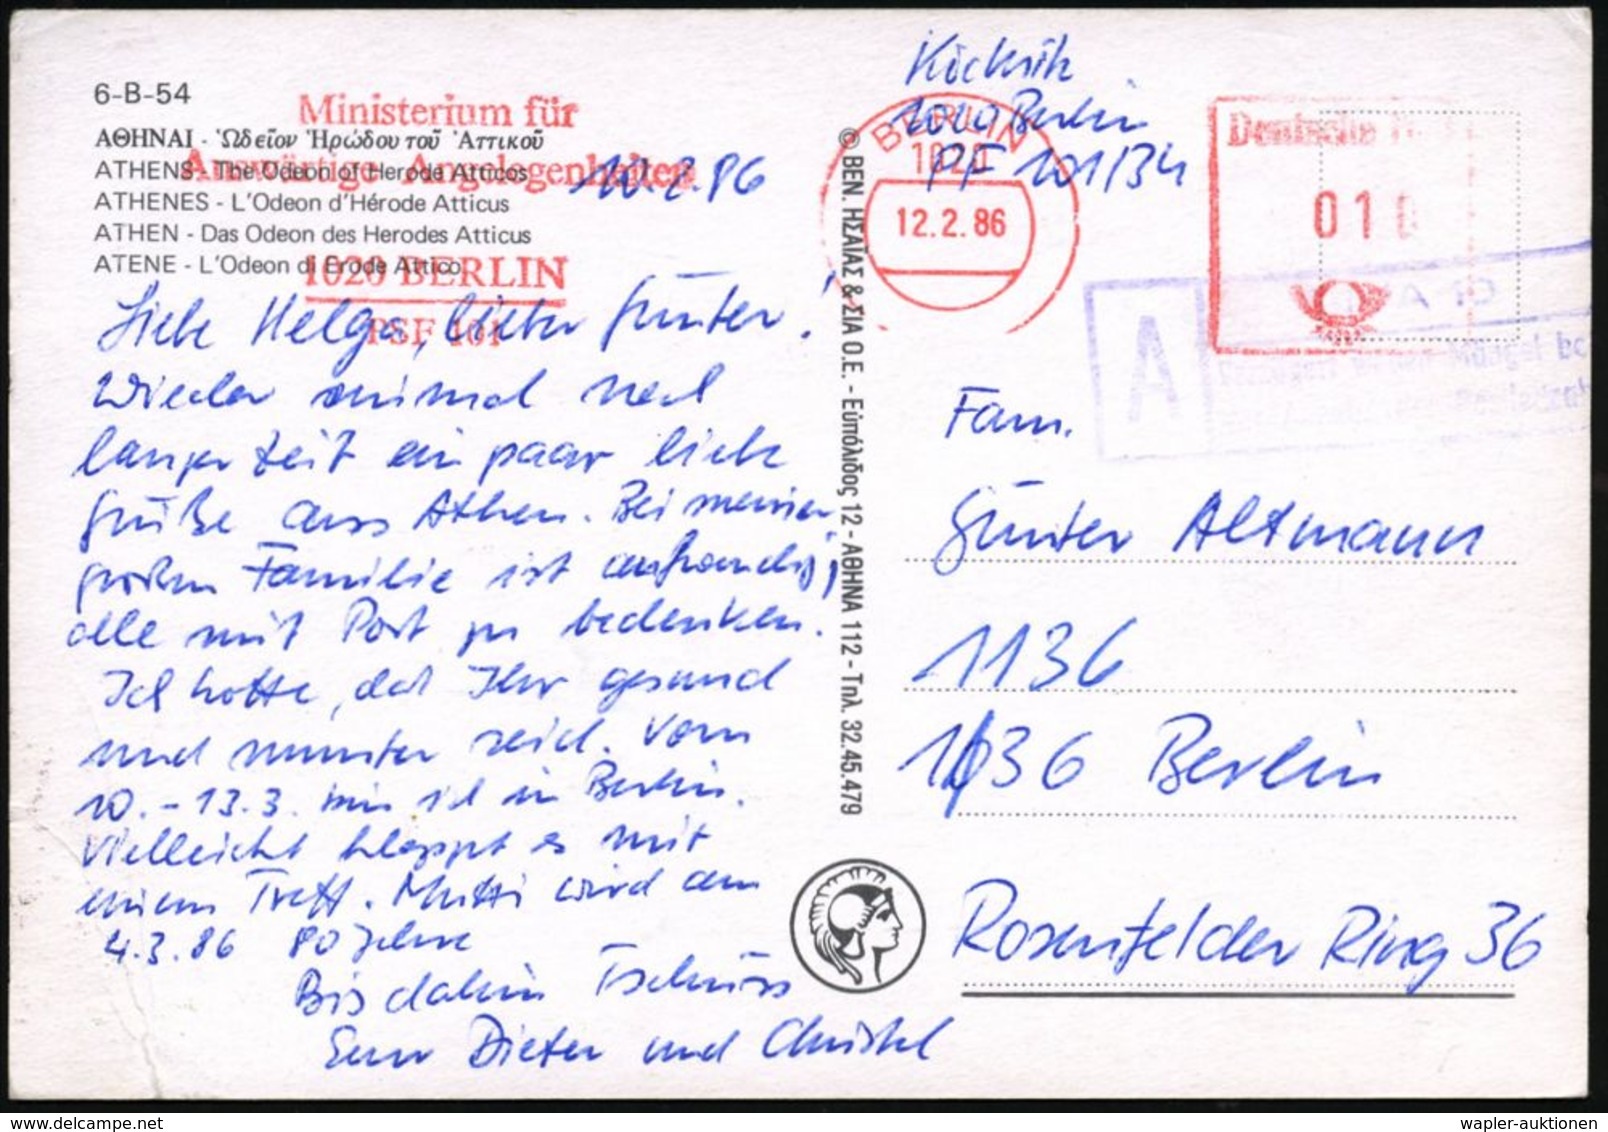 6-B-54
ΑΘΗΝΑΙ - Ὠδεῖον Ἡρώδου τοῦ Ἀττικοῦ
ATHENS - The Odeon of Herode Atticos
ATHENES - L'Odeon d'Hérode Atticus
ATHEN - Das Odeon des Herodes Atticus
ATENE - L'Odeon di Erode Attico
Ministerium für
Auswärtige Angelegenheiten
1020 BERLIN
PSF 101
10.2.86
Liebe Helga, lieber Günter!
Wieder einmal nach
langer Zeit ein paar liebe
Grüße aus Athen. Bei meiner
großen Familie ist aufwendig,
alle mit Post zu bedenken.
Ich hoffe, daß Ihr gesund
und munter seid. Vom
10. - 13.3. bin ich in Berlin.
Vielleicht klappt es mit
einem Treff. Mutti wird am
4.3.86 80 Jahre
Bis dahin Tschüss
Euer Dieter und Christel
© ΒΕΝ. ΗΣΑΪΑΣ & ΣΙΑ Ο.Ε. - Εὐπόλιδος 12 - ΑΘΗΝΑ 112 - Τηλ. 32.45.479
1020 Berlin
PF 101/34
BERLIN
1020
12.2.86
Deutsche
01
A
Mängel
Fam.
Günter Altmann
1136
1136 Berlin
Rosenfelder Ring 36
wapler-auktionen